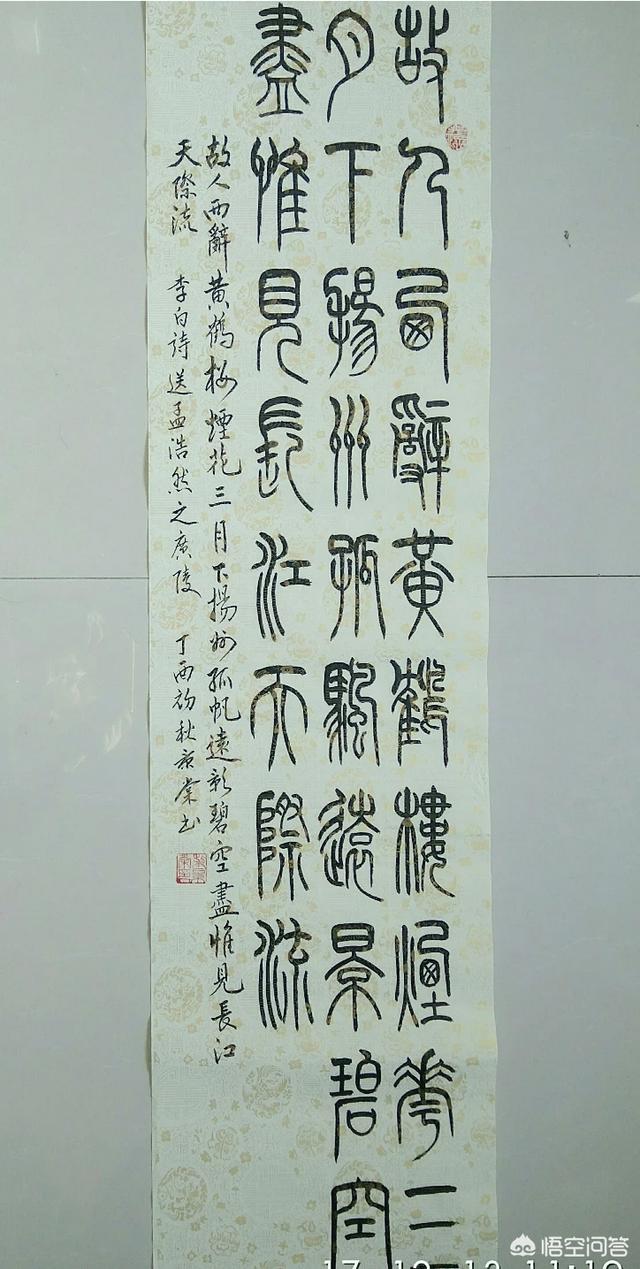 故人西辭黃鶴樓煙花三
月下揚州孤颿遠景碧空
盡惟見長江天際流
故人西辭黃鶴楼煙花三月下揚州孤帆遠影碧空盡惟見長江
天際流 李白詩送孟浩然之廣陵 丁酉初秋书
悟空问答